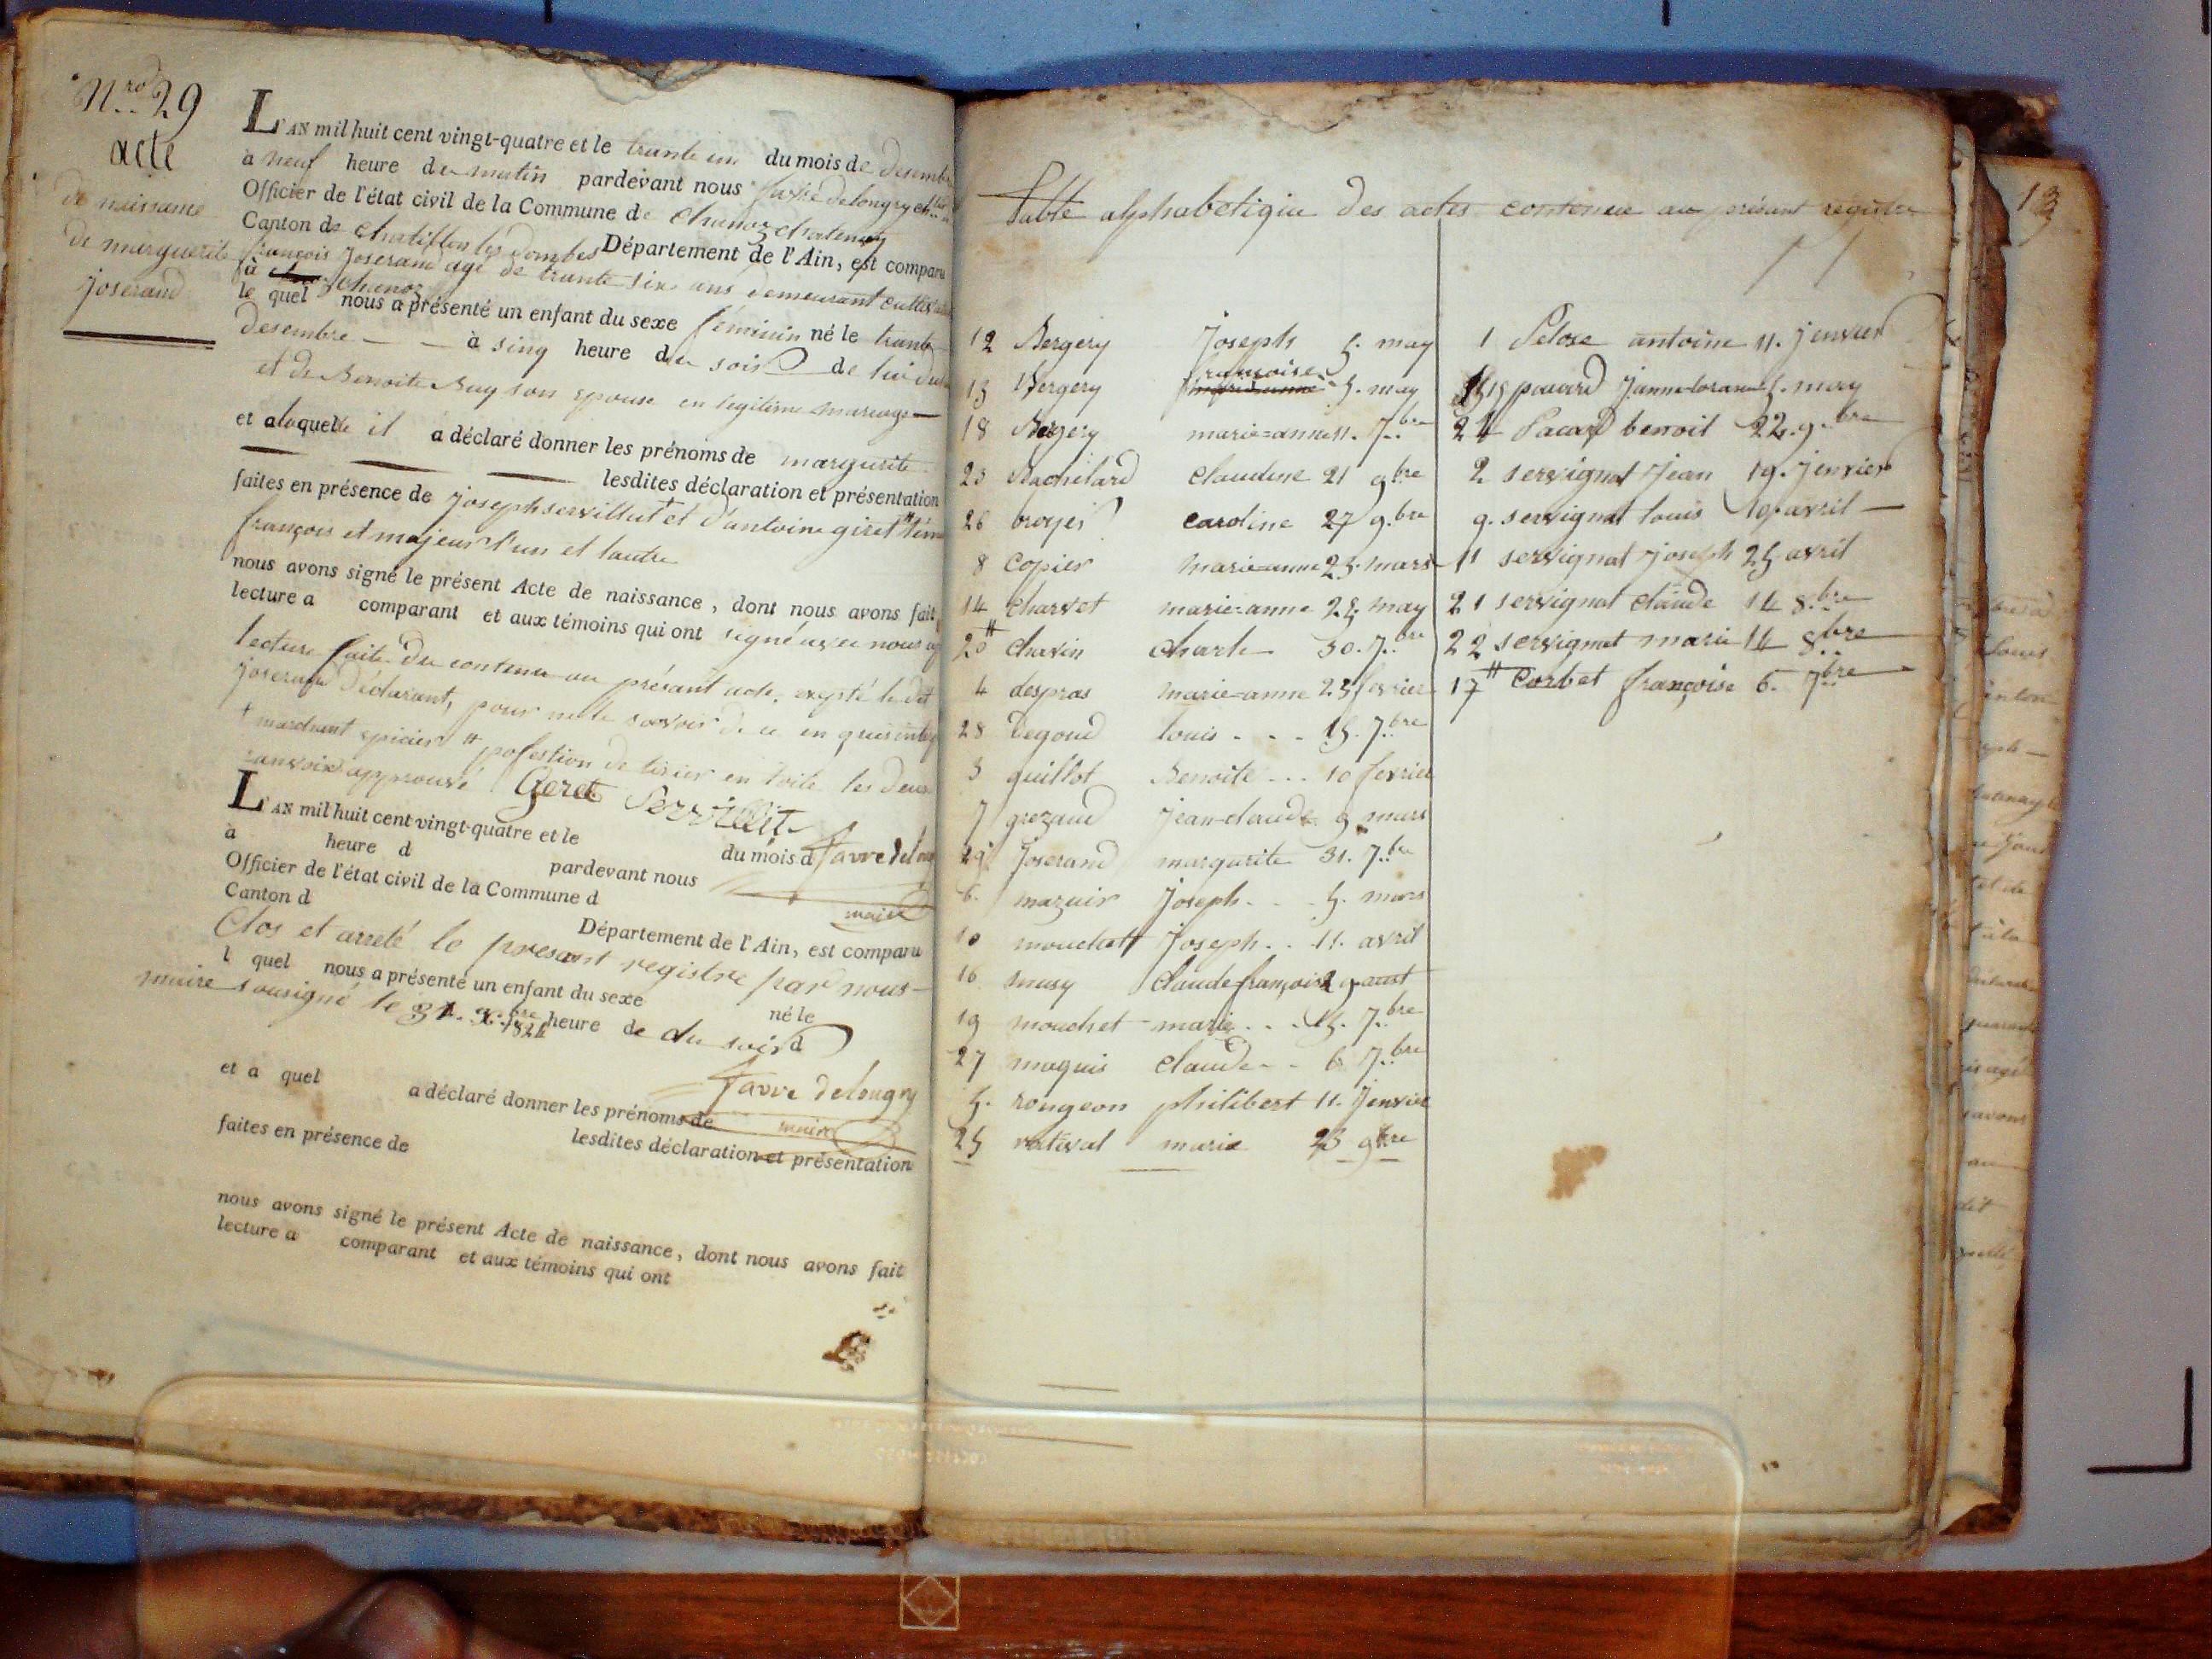 Nro 29
acte
de naissance
de marguerite
joserand
L'AN mil huit cent vingt-quatre et le trante un du mois de desembre
à neuf heure du matin pardevant nous favre delongry
Officier de l'état civil de la Commune de Chanoz chatenay
Canton de Chatillon les dombes Département de l'Ain, est comparu
françois Joserand agé de trante-six ans demeurant
à chanoz
le quel nous a présenté un enfant du sexe féminin né le trante
desembre - - à sinq heure du soir de lui
et de Benoite Buy son epouse en legitime mariage
et alaquelle il a déclaré donner les prénoms de margurite
lesdites déclaration et présentation
faites en présence de joseph servillat et d'antoine giret
françois et majeur l'un et lautre
nous avons signé le présent Acte de naissance, dont nous avons fait
lecture a comparant et aux témoins qui ont signé avec nous
lecture faite du contenu au présant acte, exepté le dit
joserand déclarant, pour ne le savoir de ce
marchant epicier pofestion de en toile les deux
approuvé Geret Servillit
favre
maire
L'AN mil huit cent vingt-quatre et le du mois d
à heure d pardevant nous
Officier de l'état civil de la Commune d
Canton d Département de l'Ain, est comparu
Clos et arreté le presant registre par nous
l quel nous a présenté un enfant du sexe né le
maire sousigné le 31. Xbre 1824 heure de du soir d
favre delongry
maire
et a quel a déclaré donner les prénoms de
lesdites déclaration et présentation
faites en présence de
nous avons signé le présent Acte de naissance, dont nous avons fait
lecture a comparant et aux témoins qui ont
Table alphabetique des actes contenu au présant registre
12 Bergery Joseph 5. may
13 Bergery françoise 5. may
18 Bergery marie=anne 11. 7bre
23 Bachelard Claudine 21 9bre
26 broyer caroline 27 9.bre
8 Copier marie=anne 25. mars
14 Charvet marie=anne 28 may
20 Chavin Charle 30. 7.bre
4 despras marie=anne 25 fevrier
28 Degoud louis . . . 15. 7.bre
3 guillot Benoite . . . 10 fevrier
7 grezaud Jean-claude 9 mars
29 Joserand margurite 31. 7.bre
6. mazuir Joseph . . . 5. mars
10 mouchet Joseph . . 11. avril
16 musy Claude françois 29 aust
19 mouchet marie . . . 15. 7.bre
27 moquis Claude - - 6 7.bre
5. rongeon philibert 11. Jenvier
25 rativat marie 23 9bre
1 Pelose antoine 11. Jenvier
15 pauard Janne 5. may
24 Pacard benoit 22. 9.bre
2 servignat Jean 19. Jenvier
9. servignat louis 19 avril
11 servignat Joseph 25 avril
21 servignat Claude 14 8.bre
22 servignat marie 14 8bre
17 Corbet françoise 6. 7bre
13